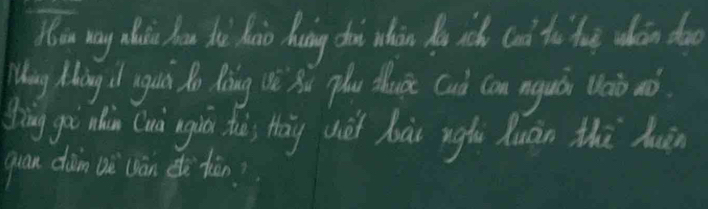 Hiện nay nhiều bạn trẻ hào hứng đón nhận lợi ích của trí tuệ nhân tạo
Nhưng không ít người lo lắng về sự phụ thuộc của con người vào nó.
góc nhìn của người trẻ, Hãy viết bài nghị luận thể hiện
quan điểm về vấn đề trên?